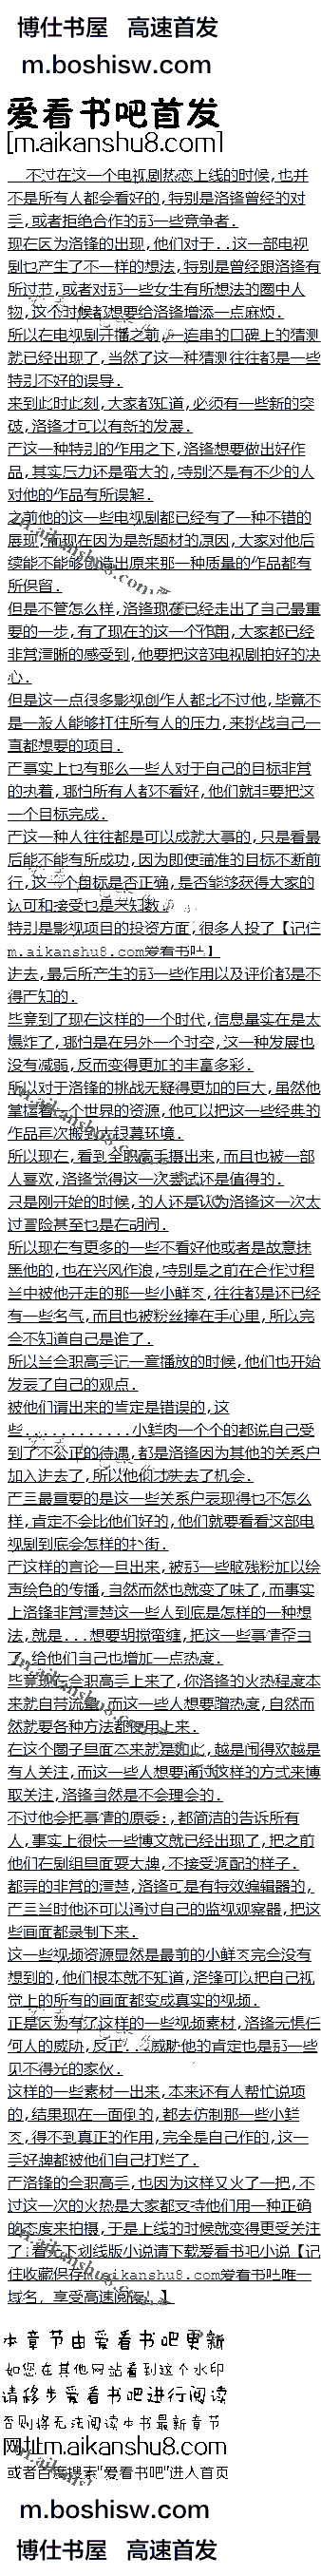 博仕书屋 高速首发
m.boshisw.com
爱看书吧首发
[m.aikanshu8.com]
不过在这一个电视剧热恋上线的时候,也并
不是所有人都会看好的,特别是洛锋曾经的对
手,或者拒绝合作的那一些竞争者.
现在因为洛锋的出现,他们对于..这一部电视
剧也产生了不一样的想法,特别是曾经跟洛锋有
所过节,或者对那一些女生有所想法的圈中人
物,这个时候都想要给洛锋增添一点麻烦.
所以在电视剧开播之前,一连串的口碑上的猜测
就已经出现了,当然了这一种猜测往往都是一些
特别不好的误导.
来到此时此刻,大家都知道,必须有一些新的突
破,洛锋才可以有新的发展.
而这一种特别的作用之下,洛锋想要做出好作
品,其实压力还是蛮大的,特别还是有不少的人
对他的作品有所误解.
之前他的这一些电视剧都已经有了一种不错的
展现,而现在因为是新题材的原因,大家对他后
续能不能够创造出原来那一种质量的作品都有
所保留.
但是不管怎么样,洛锋现在已经走出了自己最重
要的一步,有了现在的这一个作用,大家都已经
非常清晰的感受到,他要把这部电视剧拍好的决
心.
但是这一点很多影视创作人都比不过他,毕竟不
是一般人能够扛住所有人的压力,来挑战自己一
直都想要的项目.
而事实上也有那么一些人对于自己的目标非常
的执着,哪怕所有人都不看好,他们就非要把这
一个目标完成.
而这一种人往往都是可以成就大事的,只是看最
后能不能有所成功,因为即使瞄准的目标不断前
行,这一个目标是否正确,是否能够获得大家的
认可和接受也是未知数.
特别是影视项目的投资方面,很多人投了【记住
m.aikanshu8.com爱看书吧】
进去,最后所产生的那一些作用以及评价都是不
得而知的.
毕竟到了现在这样的一个时代,信息量实在是太
爆炸了,哪怕是在另外一个时空,这一种发展也
没有减弱,反而变得更加的丰富多彩.
所以对于洛锋的挑战无疑得更加的巨大,虽然他
掌握着一个世界的资源,他可以把这一些经典的
作品再次搬到大银幕环境.
所以现在,看到全职高手摄出来,而且也被一部
人喜欢,洛锋觉得这一次尝试还是值得的.
只是刚开始的时候,的人还是认为洛锋这一次太
过冒险甚至也是在胡闹.
所以现在有更多的一些不看好他或者是故意抹
黑他的,也在兴风作浪,特别是之前在合作过程
当中被他开走的那一些小鲜肉,往往都是还已经
有一些名气,而且也被粉丝捧在手心里,所以完
全不知道自己是谁了.
所以当全职高手记一章播放的时候,他们也开始
发表了自己的观点.
被他们请出来的肯定是错误的,这
些............小鲜肉一个个的都说自己受
到了不公正的待遇,都是洛锋因为其他的关系户
加入进去了,所以他们才失去了机会.
而且最重要的是这一些关系户表现得也不怎么
样,肯定不会比他们好的,他们就要看看这部电
视剧到底会怎样的扑街.
而这样的言论一旦出来,被那一些脑残粉加以绘
声绘色的传播,当然而然也就变了味了,而事实
上洛锋非常清楚这一些人到底是怎样的一种想
法,就是...想要胡搅蛮缠,把这一些事情歪曲
了,给他们自己也增加一点热度.
毕竟现在全职高手上来了,你洛锋的火热程度本
来就自带流量,而这一些人想要蹭热度,自然而
然就要各种方法都使用上来.
在这个圈子里面本来就是如此,越是闹得欢越是
有人关注,而这一些人想要通过这样的方式来博
取关注,洛锋当然是不会理会的.
不过他会把事情的原委:,都简洁的告诉所有
人,事实上很快一些博文就已经出现了,把之前
他们在剧组里面耍大牌,不接受调配的样子.
都弄的非常的清楚,洛锋可是有特效编辑器的,
而且当时他还可以通过自己的监视观察器,把这
些画面都录制下来.
这一些视频资源显然是最前的小鲜肉完全没有
想到的,他们根本就不知道,洛锋可以把自己视
觉上的所有的画面都变成真实的视频.
正是因为有了这样的一些视频素材,洛锋无惧任
何人的威胁,反正...威胁他的肯定也是那一些
见不得光的家伙.
这样的一些素材一出来,本来还有人帮忙说项
的,结果现在一面倒的,都去仿制那一些小鲜
肉,得不到真正的作用,完全是自己作的,这一
手好牌都被他们自己打烂了.
而洛锋的全职高手,也因为这样又火了一把,不
过这一次的火热是大家都支持他们用一种正确
的态度来拍摄,于是上线的时候就变得更受关注
了!看无下划线版小说请下载爱看书吧小说【记
住收藏保存m.aikanshu8.com爱看书吧唯一
域名, 享受高速阅读! 】
本章节由爱看书吧更新
如您在其他网站看到这个水印
请移步爱看书吧进行阅读
否则将无法阅读本书最新章节
网址m.aikanshu8.com
或者百度搜索"爱看书吧"进入首页
m.boshisw.com
博仕书屋 高速首发